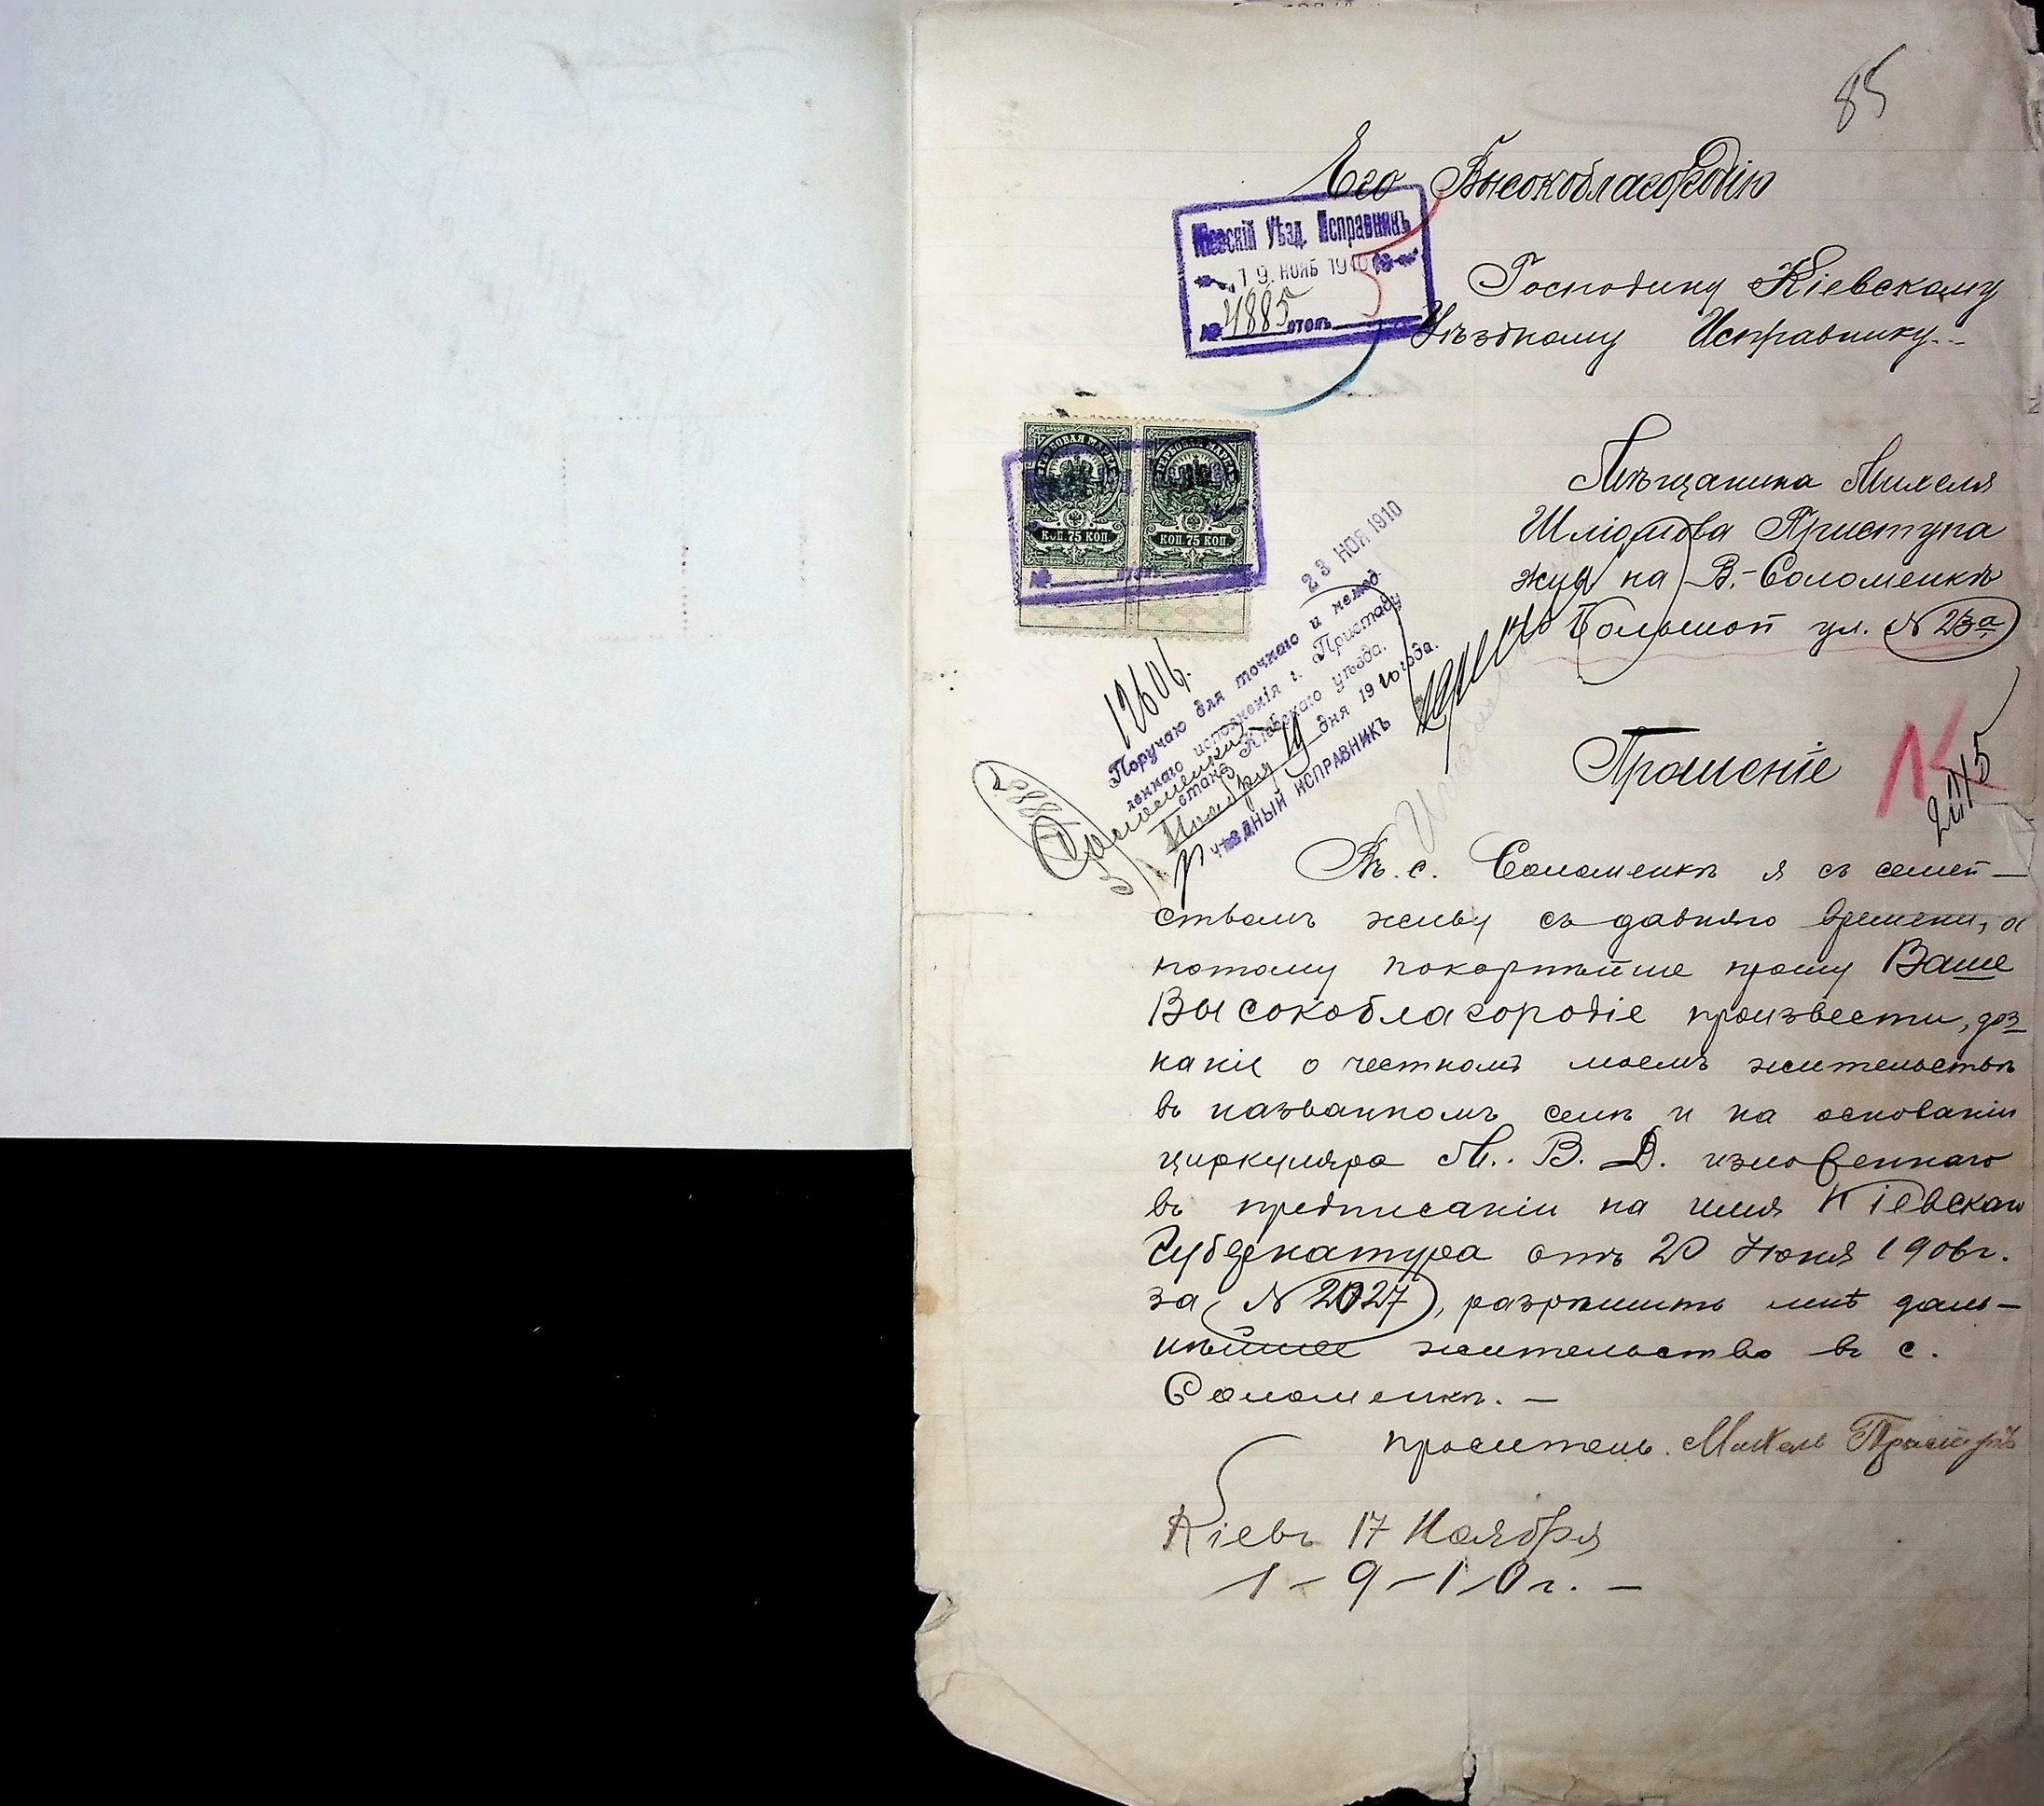 85
Его Высокоблагородію
Кіевскій Уѣзд. Исправникъ
19. НОЯБ 1910
№ 4885 столъ
Господину Кіевскому
Уѣздному Исправнику.-
КОП. 75 КОП.
КОП. 75 КОП.
Мѣщанина Михеля
Шліомова Приступа
жив на В.-Соломенкѣ
Большой ул. № 23а
23 НОЯ 1910
12606.
Поручаю для точнаго и немед
леннаго исполненія г. Приставу
стана Кіевскаго уѣзда.
Ноября 19 дня 1910 года.
УѢЗДНЫЙ ИСПРАВНИКЪ
Прошеніе
Въ с. Соломенкѣ я съ семей—
ствомъ живу съ давняго времени, а
потому покорнѣйше прошу Ваше
Высокоблагородіе произвести, доз
наніе о честномъ моемъ жительствѣ
въ названномъ селѣ и на основаніи
циркуляра М. В. Д. изложеннаго
въ предписаніи на имя Кіевскаго
Губернатура отъ 20 Іюня 1906г.
за № 2027, разрѣшить мнѣ даль—
нѣйшее жительство въ с.
Соломенкѣ. —
проситель. Михель Приступъ
Кіевъ 17 Ноября
1-9-10г. —